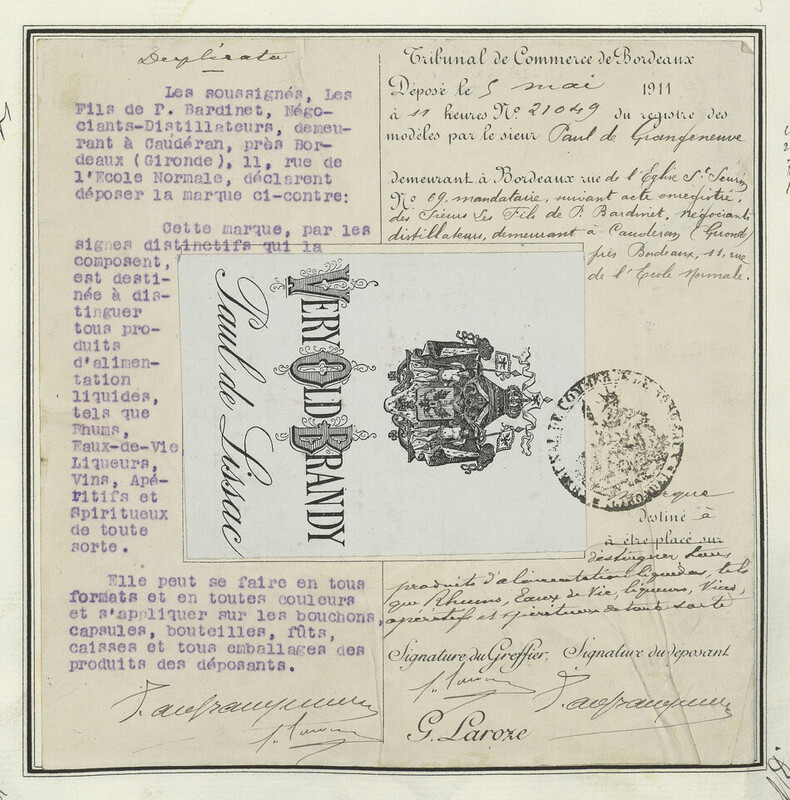 Duplicata
Les soussignés, Les
Fils de P. Bardinet, Négo-
ciants-Distillateurs, demeu-
rant à Caudéran, près Bor-
deaux (Gironde), 11, rue de
l'Ecole Normale, déclarent
déposer la marque ci-contre:
Cette marque, par les
signes distinctifs qui la
composent,
est desti-
née à dis-
tinguer
tous pro-
duits
d'alimen-
tation
liquides,
tels que
Rhums,
Eaux-de-Vie
Liqueurs,
Vins, Apé-
ritifs et
Spiritueux
de toute
sorte.
Elle peut se faire en tous
formats et en toutes couleurs
et s'appliquer sur les bouchons,
capsules, bouteilles, fûts,
caisses et tous emballages des
produits des déposants.
Tribunal de Commerce de Bordeaux
Déposé le 5 mai 1911
à 11 heures No 21049 du registre des
modèles par le sieur Paul de Grangeneuve
demeurant à Bordeaux rue de l'Eglise St Seurin
No 09. mandataire, suivant acte enregistré,
des Sieurs Les Fils de P. Bardinet, négociants
distillateurs, demeurant à Caudéran (Gironde)
près Bordeaux, 11, rue
de l'Ecole Normale.
VERY OLD BRANDY
Paul de Lissac
TRIBUNAL DE COMMERCE DE BORDEAUX
(GIRONDE)
Marque
destiné à
à être placé sur
distinguer tous
produits d'alimentation liquides, tels
que Rhums, Eaux de Vie, liqueurs, Vins,
apéritifs et spiritueux de toute sorte
Signature du Greffier. Signature du déposant
G. Laroze